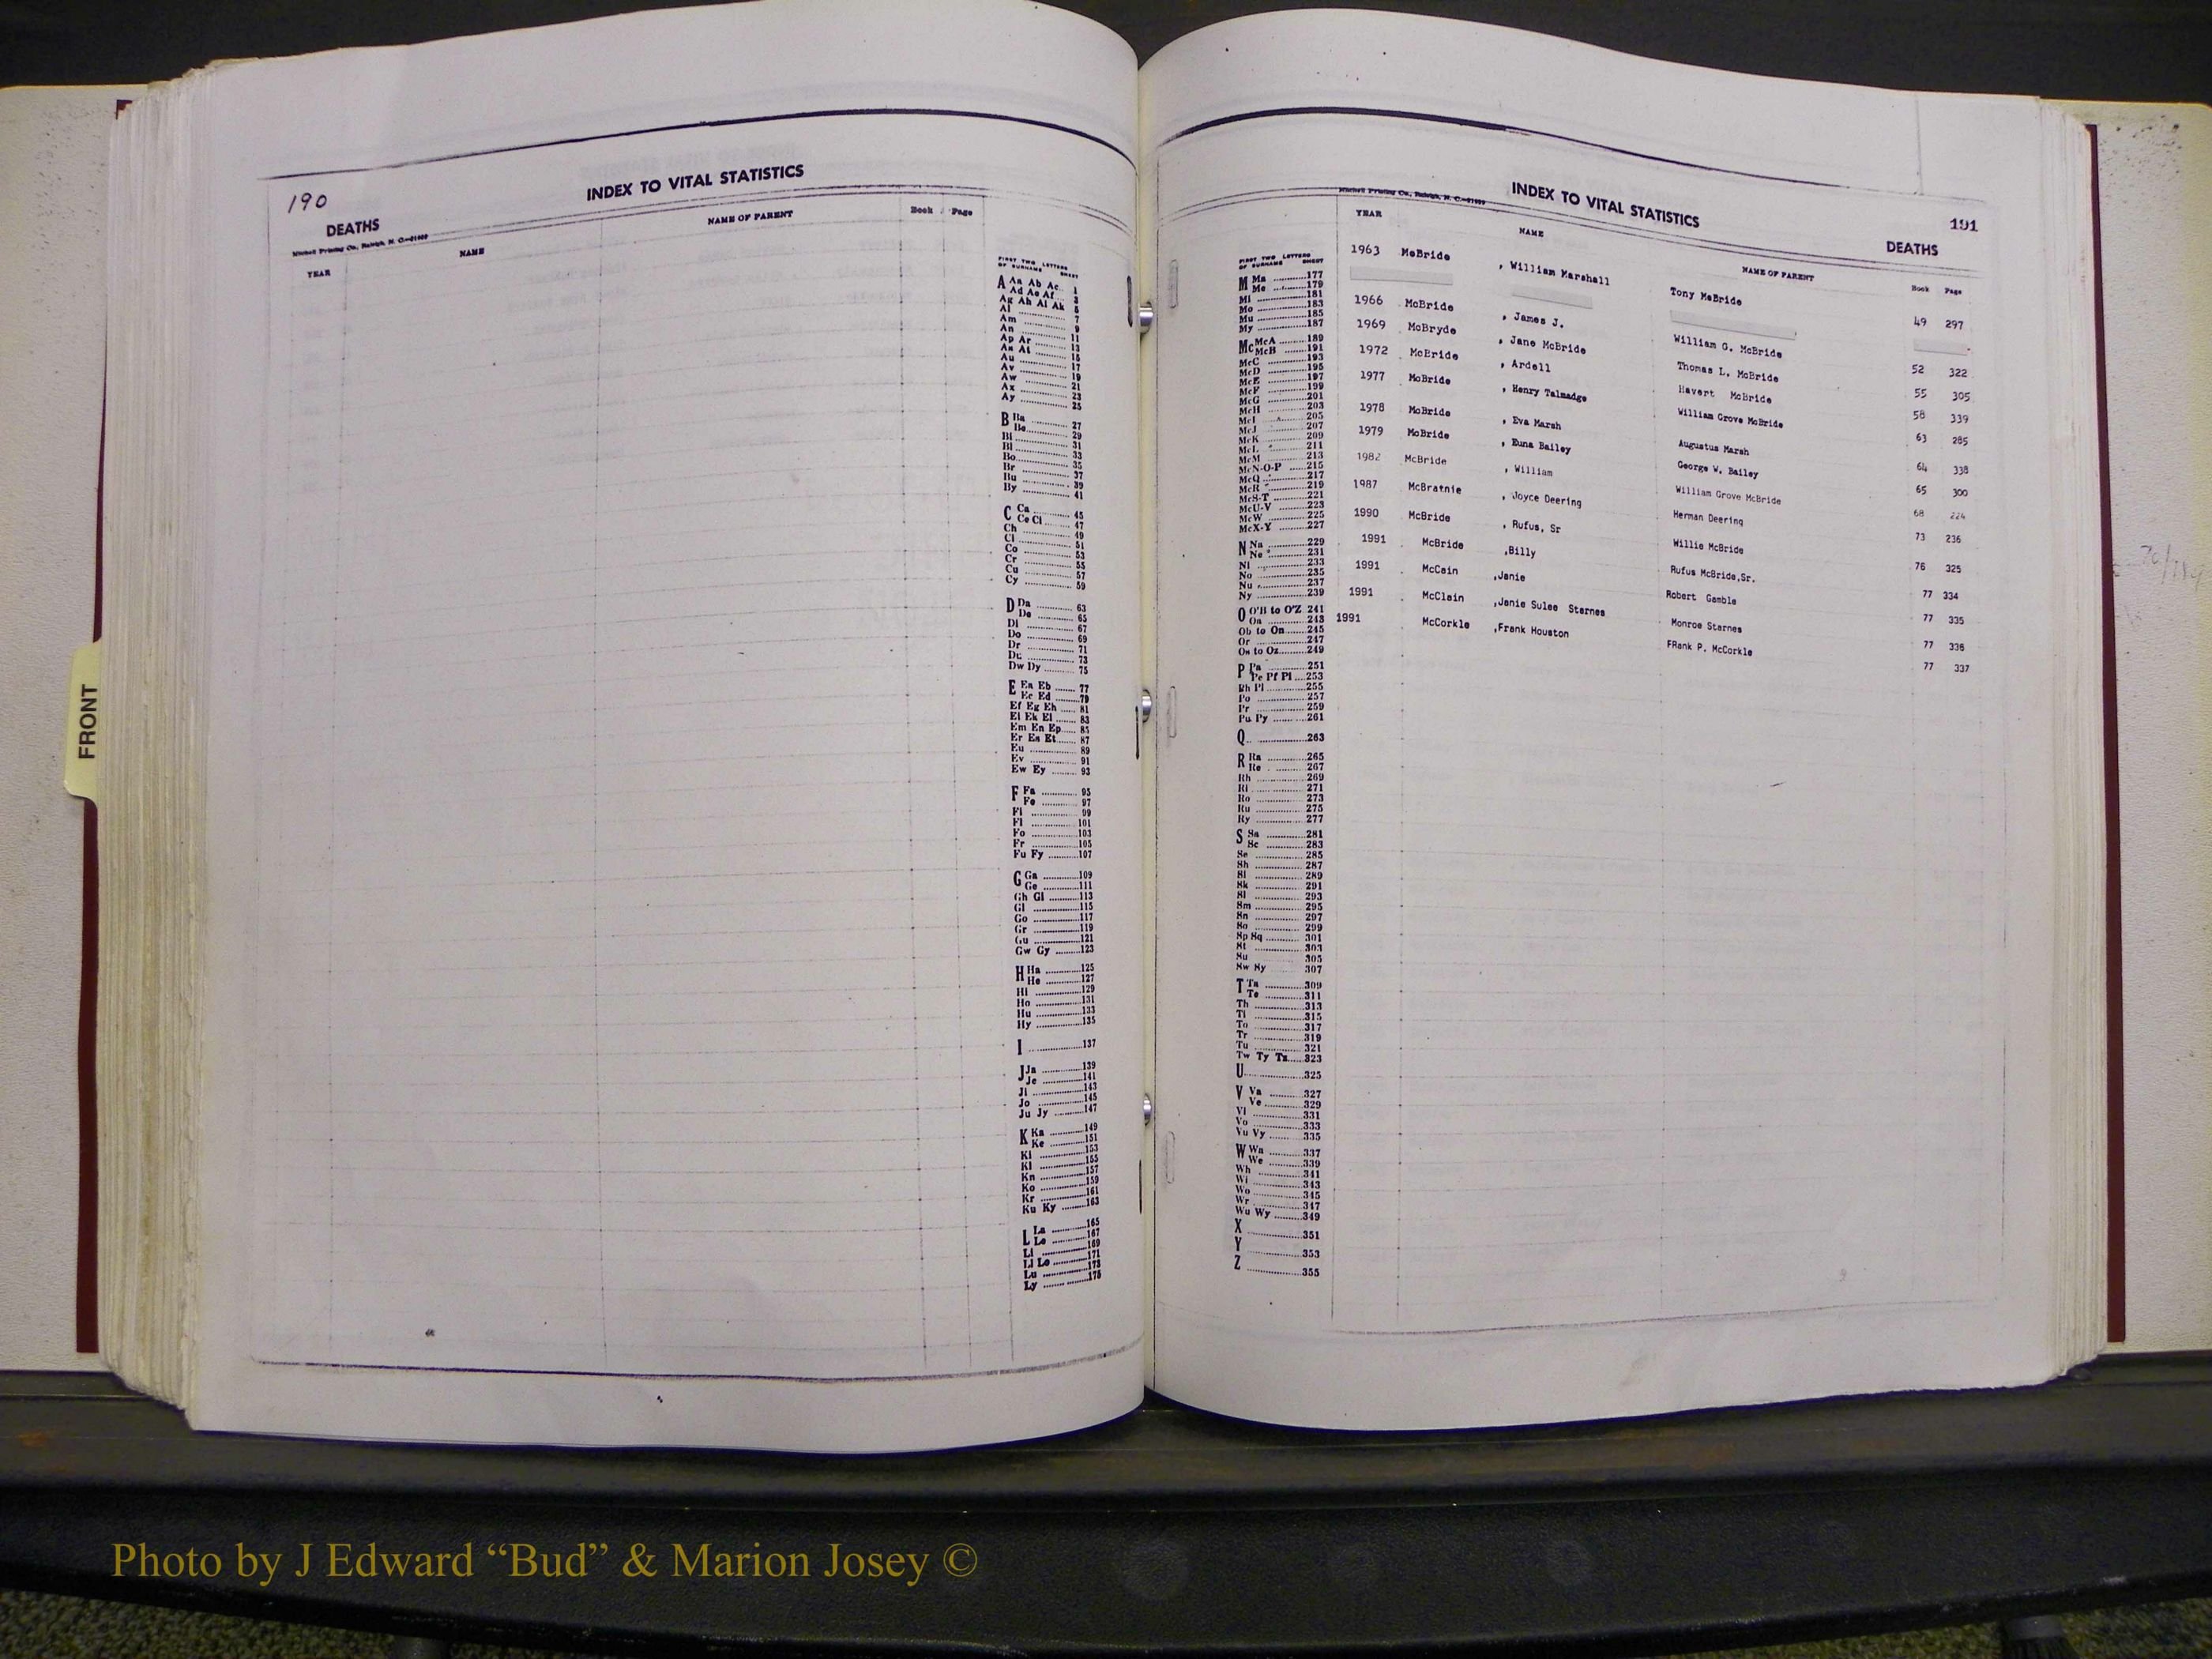 190
INDEX TO VITAL STATISTICS
DEATHS
Mitchell Printing Co., Raleigh, N. C.
YEAR NAME NAME OF PARENT Book Page
FIRST TWO LETTERS OF SURNAME SHEET
A Aa Ab Ac 1
Ad Ae Af 3
Ag Ah Ai Ak 5
Al 7
Am 9
An 11
Ap Ar 13
As At 15
Au 17
Av 19
Aw 21
Ax 23
Ay 25
B Ba 27
Be 29
Bi 31
Bl 33
Bo 35
Br 37
Bu 39
By 41
C Ca 45
Ce Ci 47
Ch 49
Cl 51
Co 53
Cr 55
Cu 57
Cy 59
D Da 63
De 65
Di 67
Do 69
Dr 71
Du 73
Dw Dy 75
E Ea Eb 77
Ec Ed 79
Ef Eg Eh 81
Ei Ek El 83
Em En Ep 85
Er Es Et 87
Eu 89
Ev 91
Ew Ey 93
F Fa 95
Fe 97
Fi 99
Fl 101
Fo 103
Fr 105
Fu Fy 107
G Ga 109
Ge 111
Gh Gi 113
Gl 115
Go 117
Gr 119
Gu 121
Gw Gy 123
H Ha 125
He 127
Hi 129
Ho 131
Hu 133
Hy 135
I 137
J Ja 139
Je 141
Ji 143
Jo 145
Ju Jy 147
K Ka 149
Ke 151
Ki 153
Kl 155
Kn 157
Ko 159
Kr 161
Ku Ky 163
L La 165
Le 167
Li 169
Ll Lo 171
Lu 173
Ly 175
FRONT
Mitchell Printing Co., Raleigh, N. C.
INDEX TO VITAL STATISTICS
191
DEATHS
YEAR NAME NAME OF PARENT Book Page
FIRST TWO LETTERS OF SURNAME SHEET
M Ma 177
Me 179
Mi 181
Mo 183
Mu 185
My 187
Mc McA 189
McB 191
McC 193
McD 195
McE 197
McF 199
McG 201
McH 203
McI 205
McJ 207
McK 209
McL 211
McM 213
McN-O-P 215
McQ 217
McR 219
McS-T 221
McU-V 223
McW 225
McX-Y 227
N Na 229
Ne 231
Ni 233
No 235
Nu 237
Ny 239
O O'B to O'Z 241
Oa 243
Ob to On 245
Or 247
Os to Oz 249
P Pa 251
Pe Pf Pi 253
Ph Pl 255
Po 257
Pr 259
Pu Py 261
Q 263
R Ra 265
Re 267
Rh 269
Ri 271
Ro 273
Ru 275
Ry 277
S Sa 281
Sc 283
Se 285
Sh 287
Si 289
Sk 291
Sl 293
Sm 295
Sn 297
So 299
Sp Sq 301
St 303
Su 305
Sw Sy 307
T Ta 309
Te 311
Th 313
Ti 315
To 317
Tr 319
Tu 321
Tw Ty Tz 323
U 325
V Va 327
Ve 329
Vi 331
Vo 333
Vu Vy 335
W Wa 337
We 339
Wh 341
Wi 343
Wo 345
Wr 347
Wu Wy 349
X 351
Y 353
Z 355
1963 McBride , William Marshall Tony McBride 49 297
1966 McBride , James J. William G. McBride 52 322
1969 McBryde , Jane McBride Thomas L. McBride 55 305
1972 McBride , Ardell Havert McBride 58 339
1977 McBride , Henry Talmadge William Grove McBride 63 285
1978 McBride , Eva Marsh Augustus Marsh 64 338
1979 McBride , Euna Bailey George W. Bailey 65 300
1982 McBride , William William Grove McBride 68 224
1987 McBratnie , Joyce Deering Herman Deering 73 236
1990 McBride , Rufus, Sr Willie McBride 76 325
1991 McBride ,Billy Rufus McBride,Sr. 77 334
1991 McCain ,Janie Robert Gamble 77 335
1991 McClain ,Janie Sulee Starnes Monroe Starnes 77 336
1991 McCorkle ,Frank Houston FRank P. McCorkle 77 337
Photo by J Edward “Bud” & Marion Josey ©